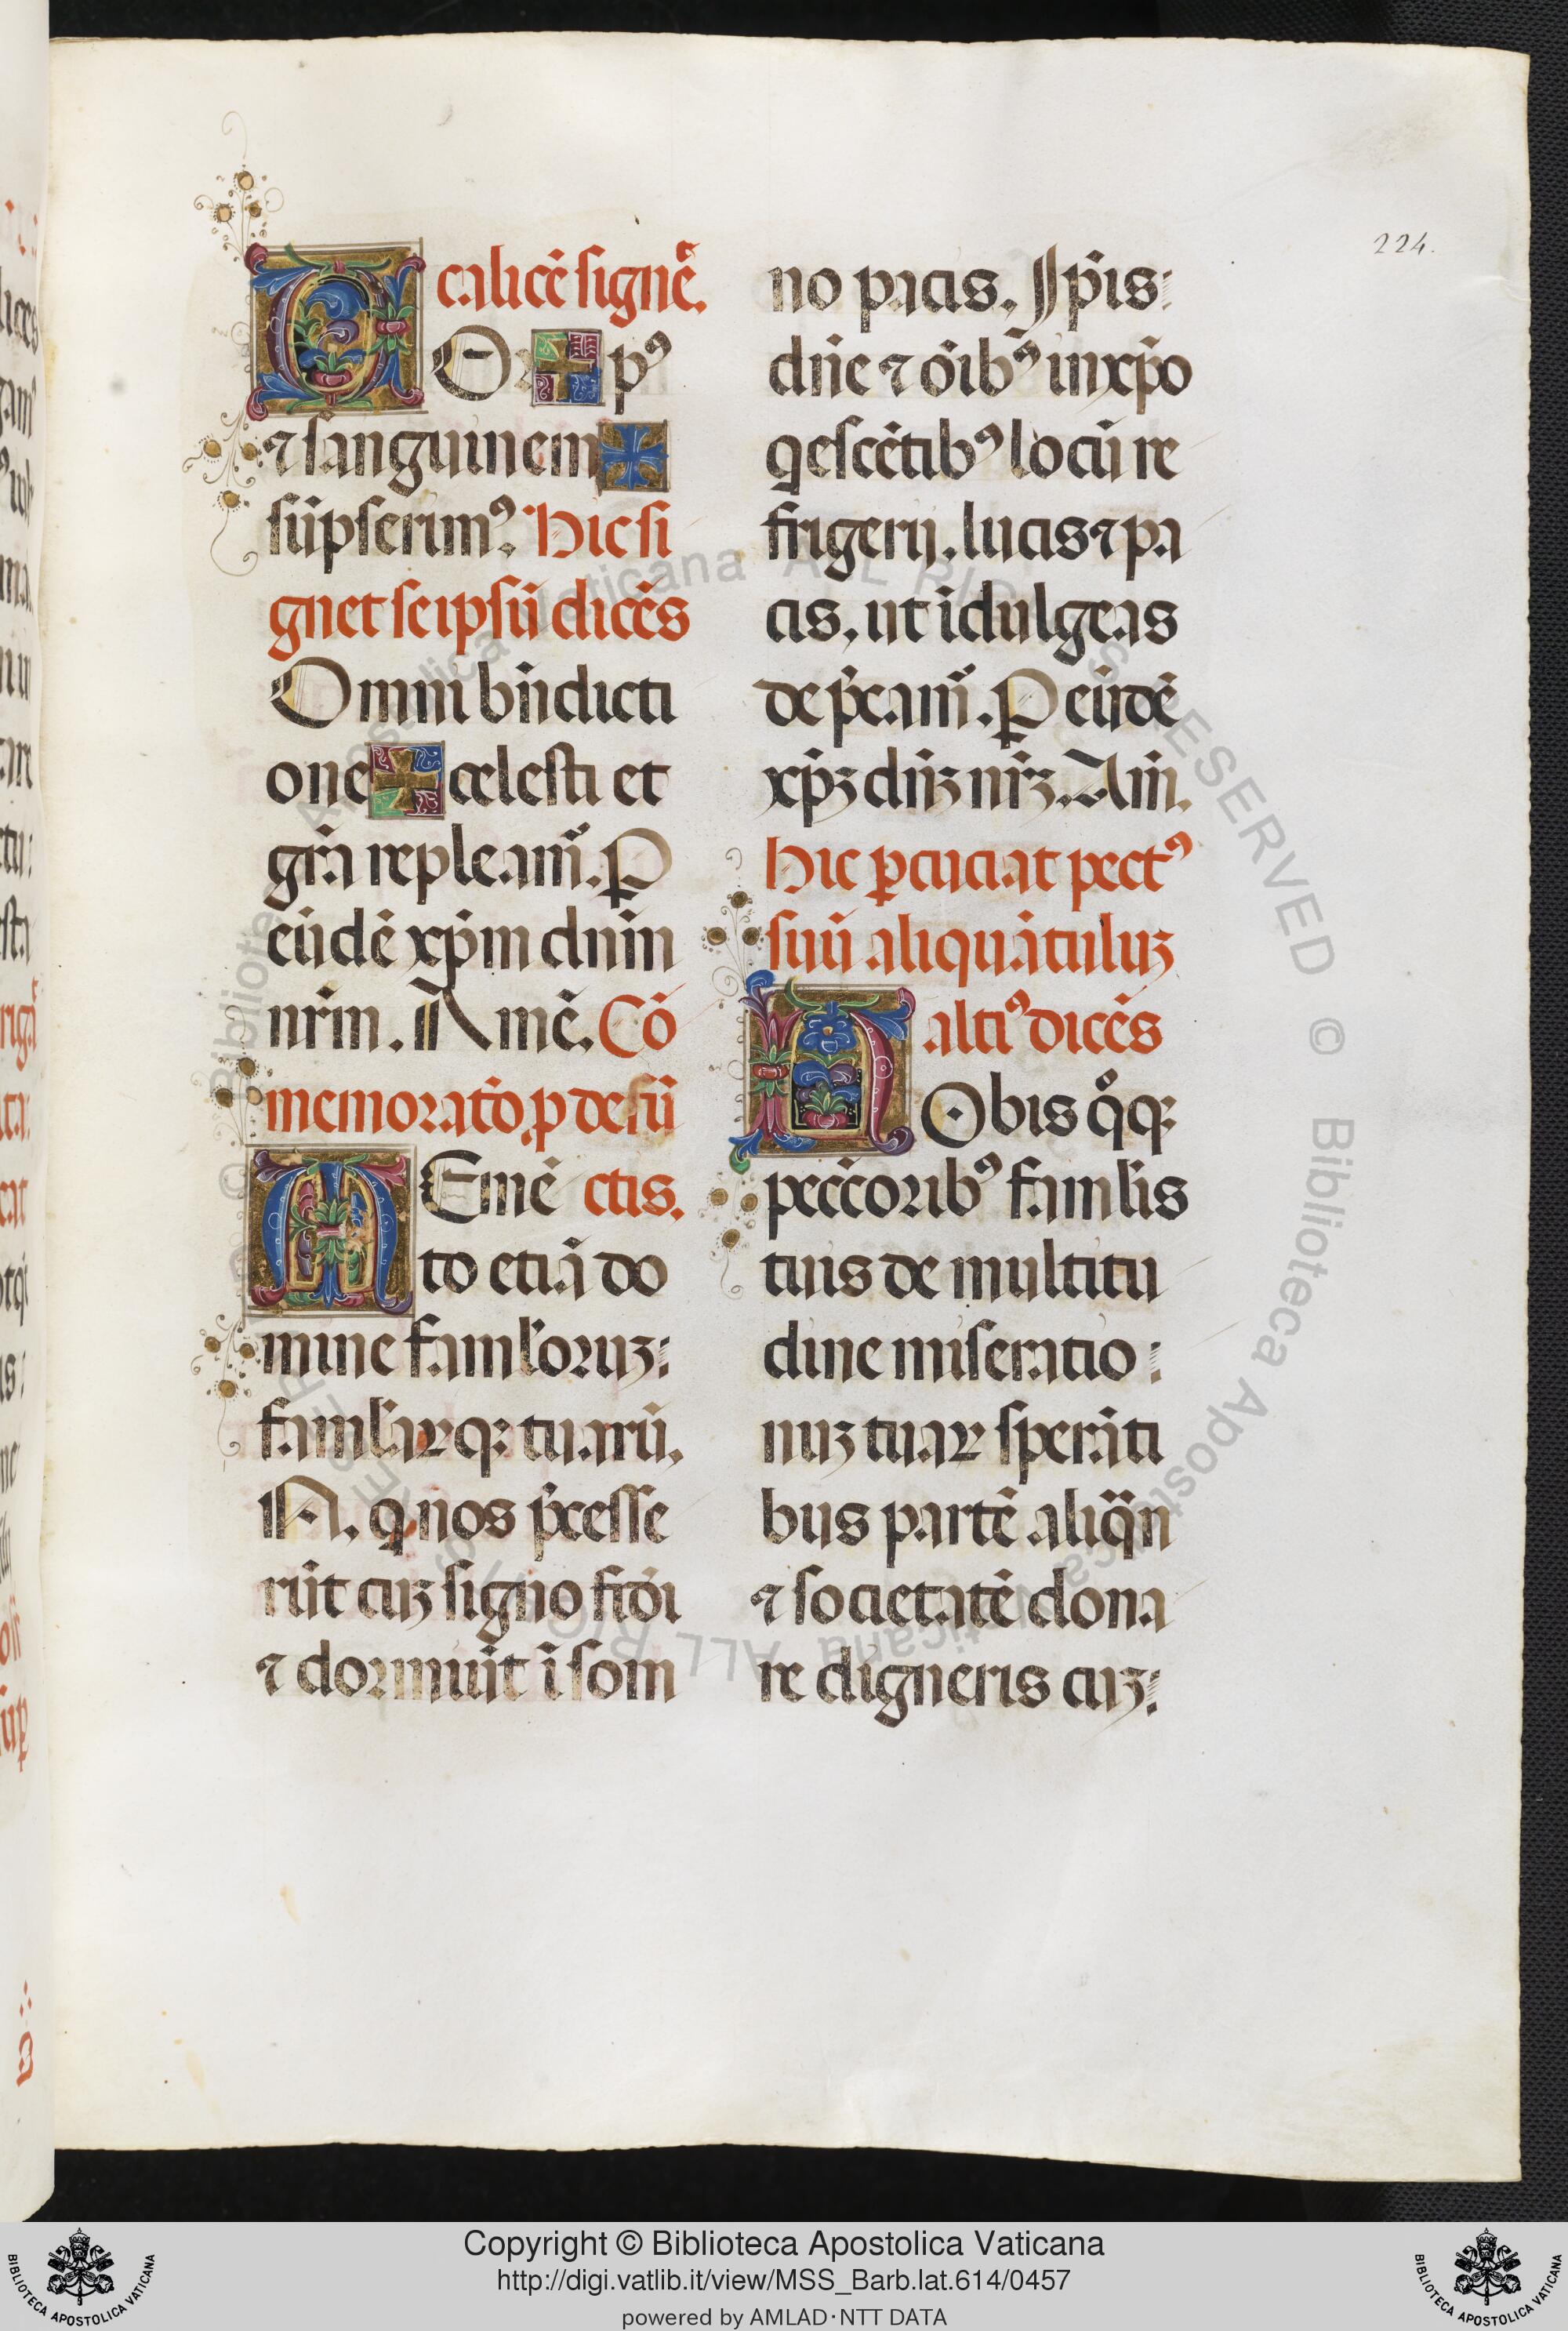 224.
calicē signet̄.
COr ✠ pꝰ
⁊ sanguinem ✠
sūpserimꝰ. Hic si
gnet seipsū dicēs
Omni bn̄dicti
one ✠ celesti et
grā repleam̄. P
eūdē xp̄m dnm̄
nrm̄. Amē. Cō
memorat̄o, p defū
MEmē ctis.
to etiā do
mine famlōruꝫ:
famlāꝝqꝫ tuarū,
N. q nos p̄cesse
rūt cuꝫ signo fid̄i
⁊ dormiūt ī som
no pacis. Ip̄is:
dn̄e ⁊ oībꝰ in xp̄o
qescētibꝰ locū re
frigerij, lucis ⁊ pa
cis, ut īdulgeas
dep̄cam̄. P eūdē
xp̄ꝫ dn̄ꝫ nr̄ꝫ. Am̄.
Hic ꝑcuciat pectꝰ
suū aliquātuluꝫ
altiꝰ dicēs
NObis qͦqꝫ
peccōribꝰ famlīs
tuis de multitu
dine miseratio:
nuꝫ tuaꝝ sperāti
bus partē aliqn̄
⁊ societatē dona
re digneris cuꝫ:
Copyright © Biblioteca Apostolica Vaticana
http://digi.vatlib.it/view/MSS_Barb.lat.614/0457
powered by AMLAD·NTT DATA
BIBLIOTECA APOSTOLICA VATICANA
BIBLIOTECA APOSTOLICA VATICANA